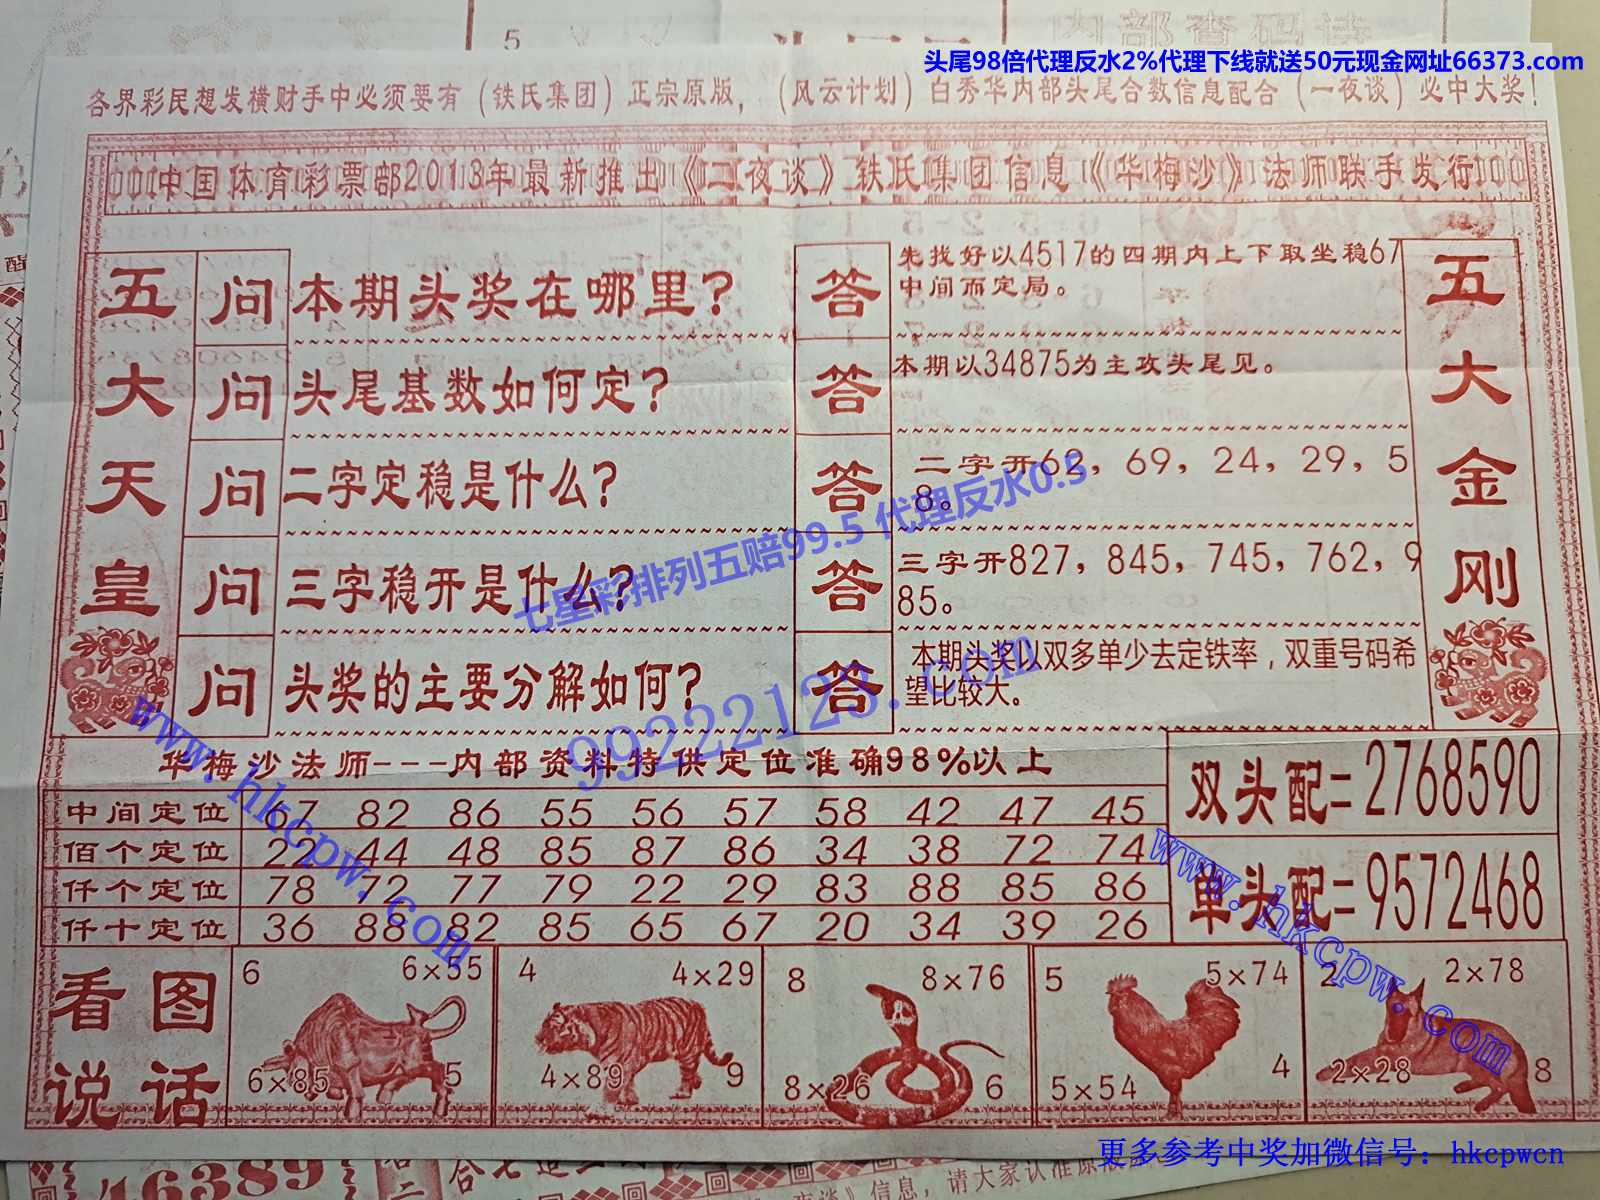 内部查码诗
5
头尾98倍代理反水2%代理下线就送50元现金网址66373.com
各界彩民想发横财手中必须要有（铁氏集团）正宗原版，（风云计划）白秀华内部头尾合数信息配合（一夜谈）必中大奖！
中国体育彩票部2013年最新推出《二夜谈》铁氏集团信息《华梅沙》法师联手发行
五大天皇
问 本期头奖在哪里？
答 先找好以4517的四期内上下取坐稳67
中间而定局。
问 头尾基数如何定？
答 本期以34875为主攻头尾见。
问 二字定稳是什么？
答 二字开62，69，24，29，5
8。
问 三字稳开是什么？
答 三字开827，845，745，762，9
85。
问 头奖的主要分解如何？
答 本期头奖以双多单少去定铁率，双重号码希
望比较大。
五大金刚
七星彩排列五赔99.5 代理反水0.5
99222123.com
www.hkcpw.com
华梅沙法师---内部资料特供定位准确98%以上
中间定位 67 82 86 55 56 57 58 42 47 45
佰个定位 22 44 48 85 87 86 34 38 72 74
仟个定位 78 72 77 79 22 29 83 88 85 86
仟十定位 36 88 82 85 65 67 20 34 39 26
双头配=2768590
单头配=9572468
www.hkcpw.com
看图
说话
6 6×55
6×85 5
4 4×29
4×89 9
8 8×76
8×26 6
5 5×74
5×54 4
2 2×78
2×28 8
更多参考中奖加微信号：hkcpwcn
46389
信息，请大家认准原版